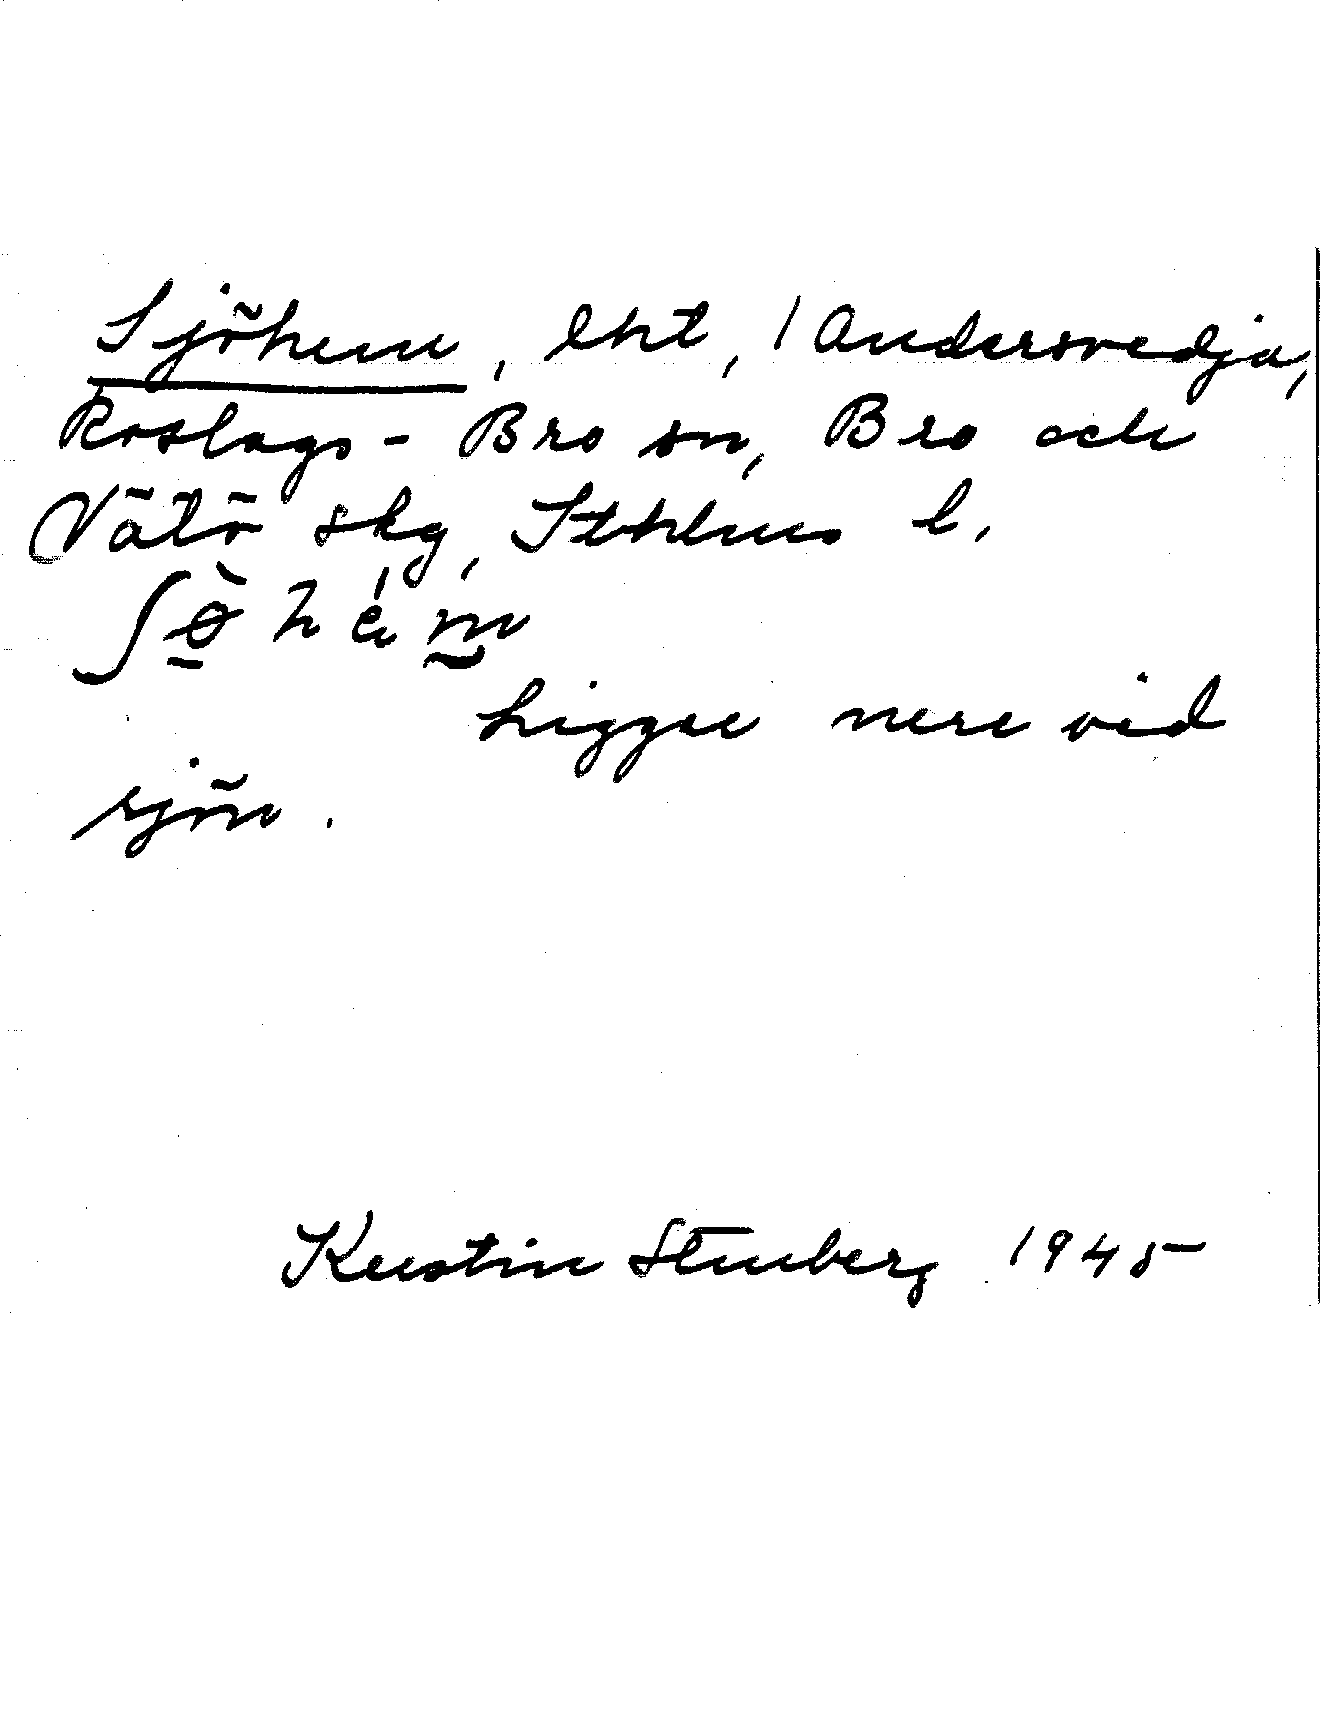 Sjöhem, lht, 1 Andersvedja,
Roslags-Bro sn, Bro och
Vätö skg, Sthlms l.
Ligger nere vid
sjön.
Kerstin Stenberg 1945